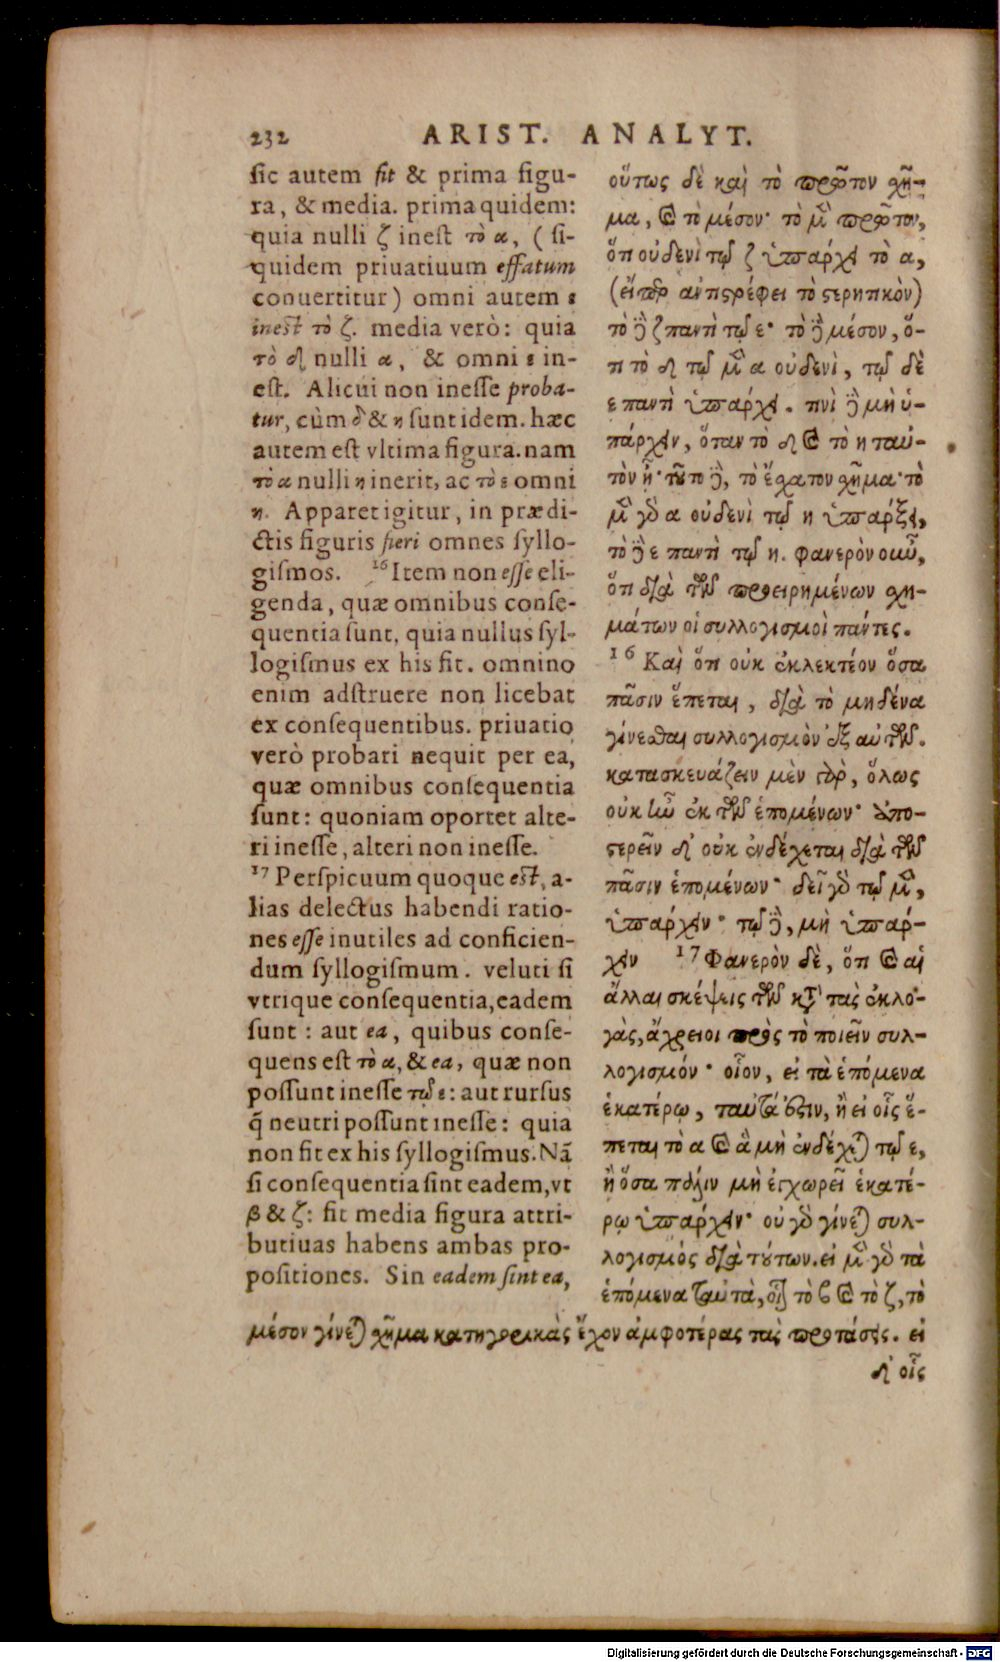 232 ARIST. ANALYT.
sic autem fit & prima figu-
ra, & media. prima quidem:
quia nulli ζ inest τὸ α, (si-
quidem priuatiuum effatum
conuertitur) omni autem ε
inest τὸ ζ. media verò: quia
τὸ δὴ nulli α, & omni ε in-
est. Alicui non inesse proba-
tur, cùm δ & η sunt idem. hæc
autem est vltima figura. nam
τὸ α nulli η inerit, ac τὸ ε omni
η. Apparet igitur, in prædi-
ctis figuris fieri omnes syllo-
gismos. 16 Item non esse eli-
genda, quæ omnibus conse-
quentia sunt, quia nullus syl-
logismus ex his fit. omnino
enim adstruere non licebat
ex consequentibus. priuatio
verò probari nequit per ea,
quæ omnibus consequentia
sunt: quoniam oportet alte-
ri inesse, alteri non inesse.
17 Perspicuum quoque est, a-
lias delectus habendi ratio-
nes esse inutiles ad conficien-
dum syllogismum. veluti si
vtrique consequentia, eadem
sunt: aut ea, quibus conse-
quens est τὸ α, & ea, quæ non
possunt inesse τῷ ε: aut rursus
q̃ neutri possunt inesse: quia
non fit ex his syllogismus. Nā
si consequentia sint eadem, vt
β & ζ: fit media figura attri-
butiuas habens ambas pro-
positiones. Sin eadem sint ea,
οὕτως δὲ καὶ τὸ πρῶτον χῆ-
μα, καὶ τὸ μέσον· τὸ μὲν πρῶτον,
ὅτι οὐδενὶ τῷ ζ ὑπάρχει τὸ α,
(εἴπερ ἀντιστρέφει τὸ στερητικὸν)
τὸ δὲ ζ παντὶ τῷ ε· τὸ δὲ μέσον, ὅ-
τι τὸ δ τῷ μὲν α οὐδενὶ, τῷ δὲ
ε παντὶ ὑπάρχει. τινὶ δὲ μὴ ὑ-
πάρχειν, ὅταν τὸ δ καὶ τὸ η ταὐ-
τὸν ᾖ· τοῦτο δὲ, τὸ ἔσχατον σχῆμα· τὸ
μὲν γὰρ α οὐδενὶ τῷ η ὑπάρξει,
τὸ δὲ ε παντὶ τῷ η. φανερὸν οὖν,
ὅτι διὰ τῶν προειρημένων σχη-
μάτων οἱ συλλογισμοὶ πάντες.
16 Καὶ ὅτι οὐκ ἐκλεκτέον ὅσα
πᾶσιν ἕπεται, διὰ τὸ μηδένα
γίνεσθαι συλλογισμὸν ἐξ αὐτῶν.
κατασκευάζειν μὲν γὰρ, ὅλως
οὐκ ἦν ἐκ τῶν ἑπομένων· ἀπο-
στερεῖν δ' οὐκ ἐνδέχεται διὰ τῶν
πᾶσιν ἑπομένων· δεῖ γὰρ τῷ μὲν,
ὑπάρχειν· τῷ δὲ, μὴ ὑπάρ-
χειν 17 Φανερὸν δὲ, ὅτι καὶ αἱ
ἄλλαι σκέψεις τῶν κατὰ τὰς ἐκλο-
γὰς, ἄχρειοι πρὸς τὸ ποιεῖν συλ-
λογισμόν· οἷον, εἰ τὰ ἑπόμενα
ἑκατέρῳ, ταὐτά ἐστιν, ἢ εἰ οἷς ἕ-
πεται τὸ α καὶ ἃ μὴ ἐνδέχεται τῷ ε,
ἢ ὅσα πάλιν μὴ ἐγχωρεῖ ἑκατέ-
ρῳ ὑπάρχειν· οὐ γὰρ γίνεται συλ-
λογισμὸς διὰ τούτων. εἰ μὲν γὰρ τὰ
ἑπόμενα ταὐτὰ, οἷον τὸ β καὶ τὸ ζ, τὸ
μέσον γίνεται σχῆμα κατηγορικὰς ἔχον ἀμφοτέρας τὰς προτάσεις. εἰ
δ' οἷς
Digitalisierung gefördert durch die Deutsche Forschungsgemeinschaft - DFG